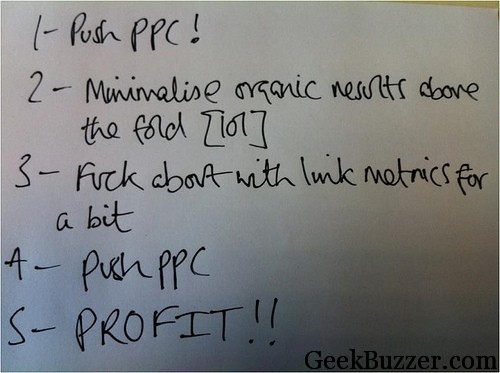 1- Push PPC!
2- Minimalise organic results above
the fold [lol]
3- Fuck about with link metrics for
a bit
4- Push PPC
5- PROFIT!!
GeekBuzzer.com